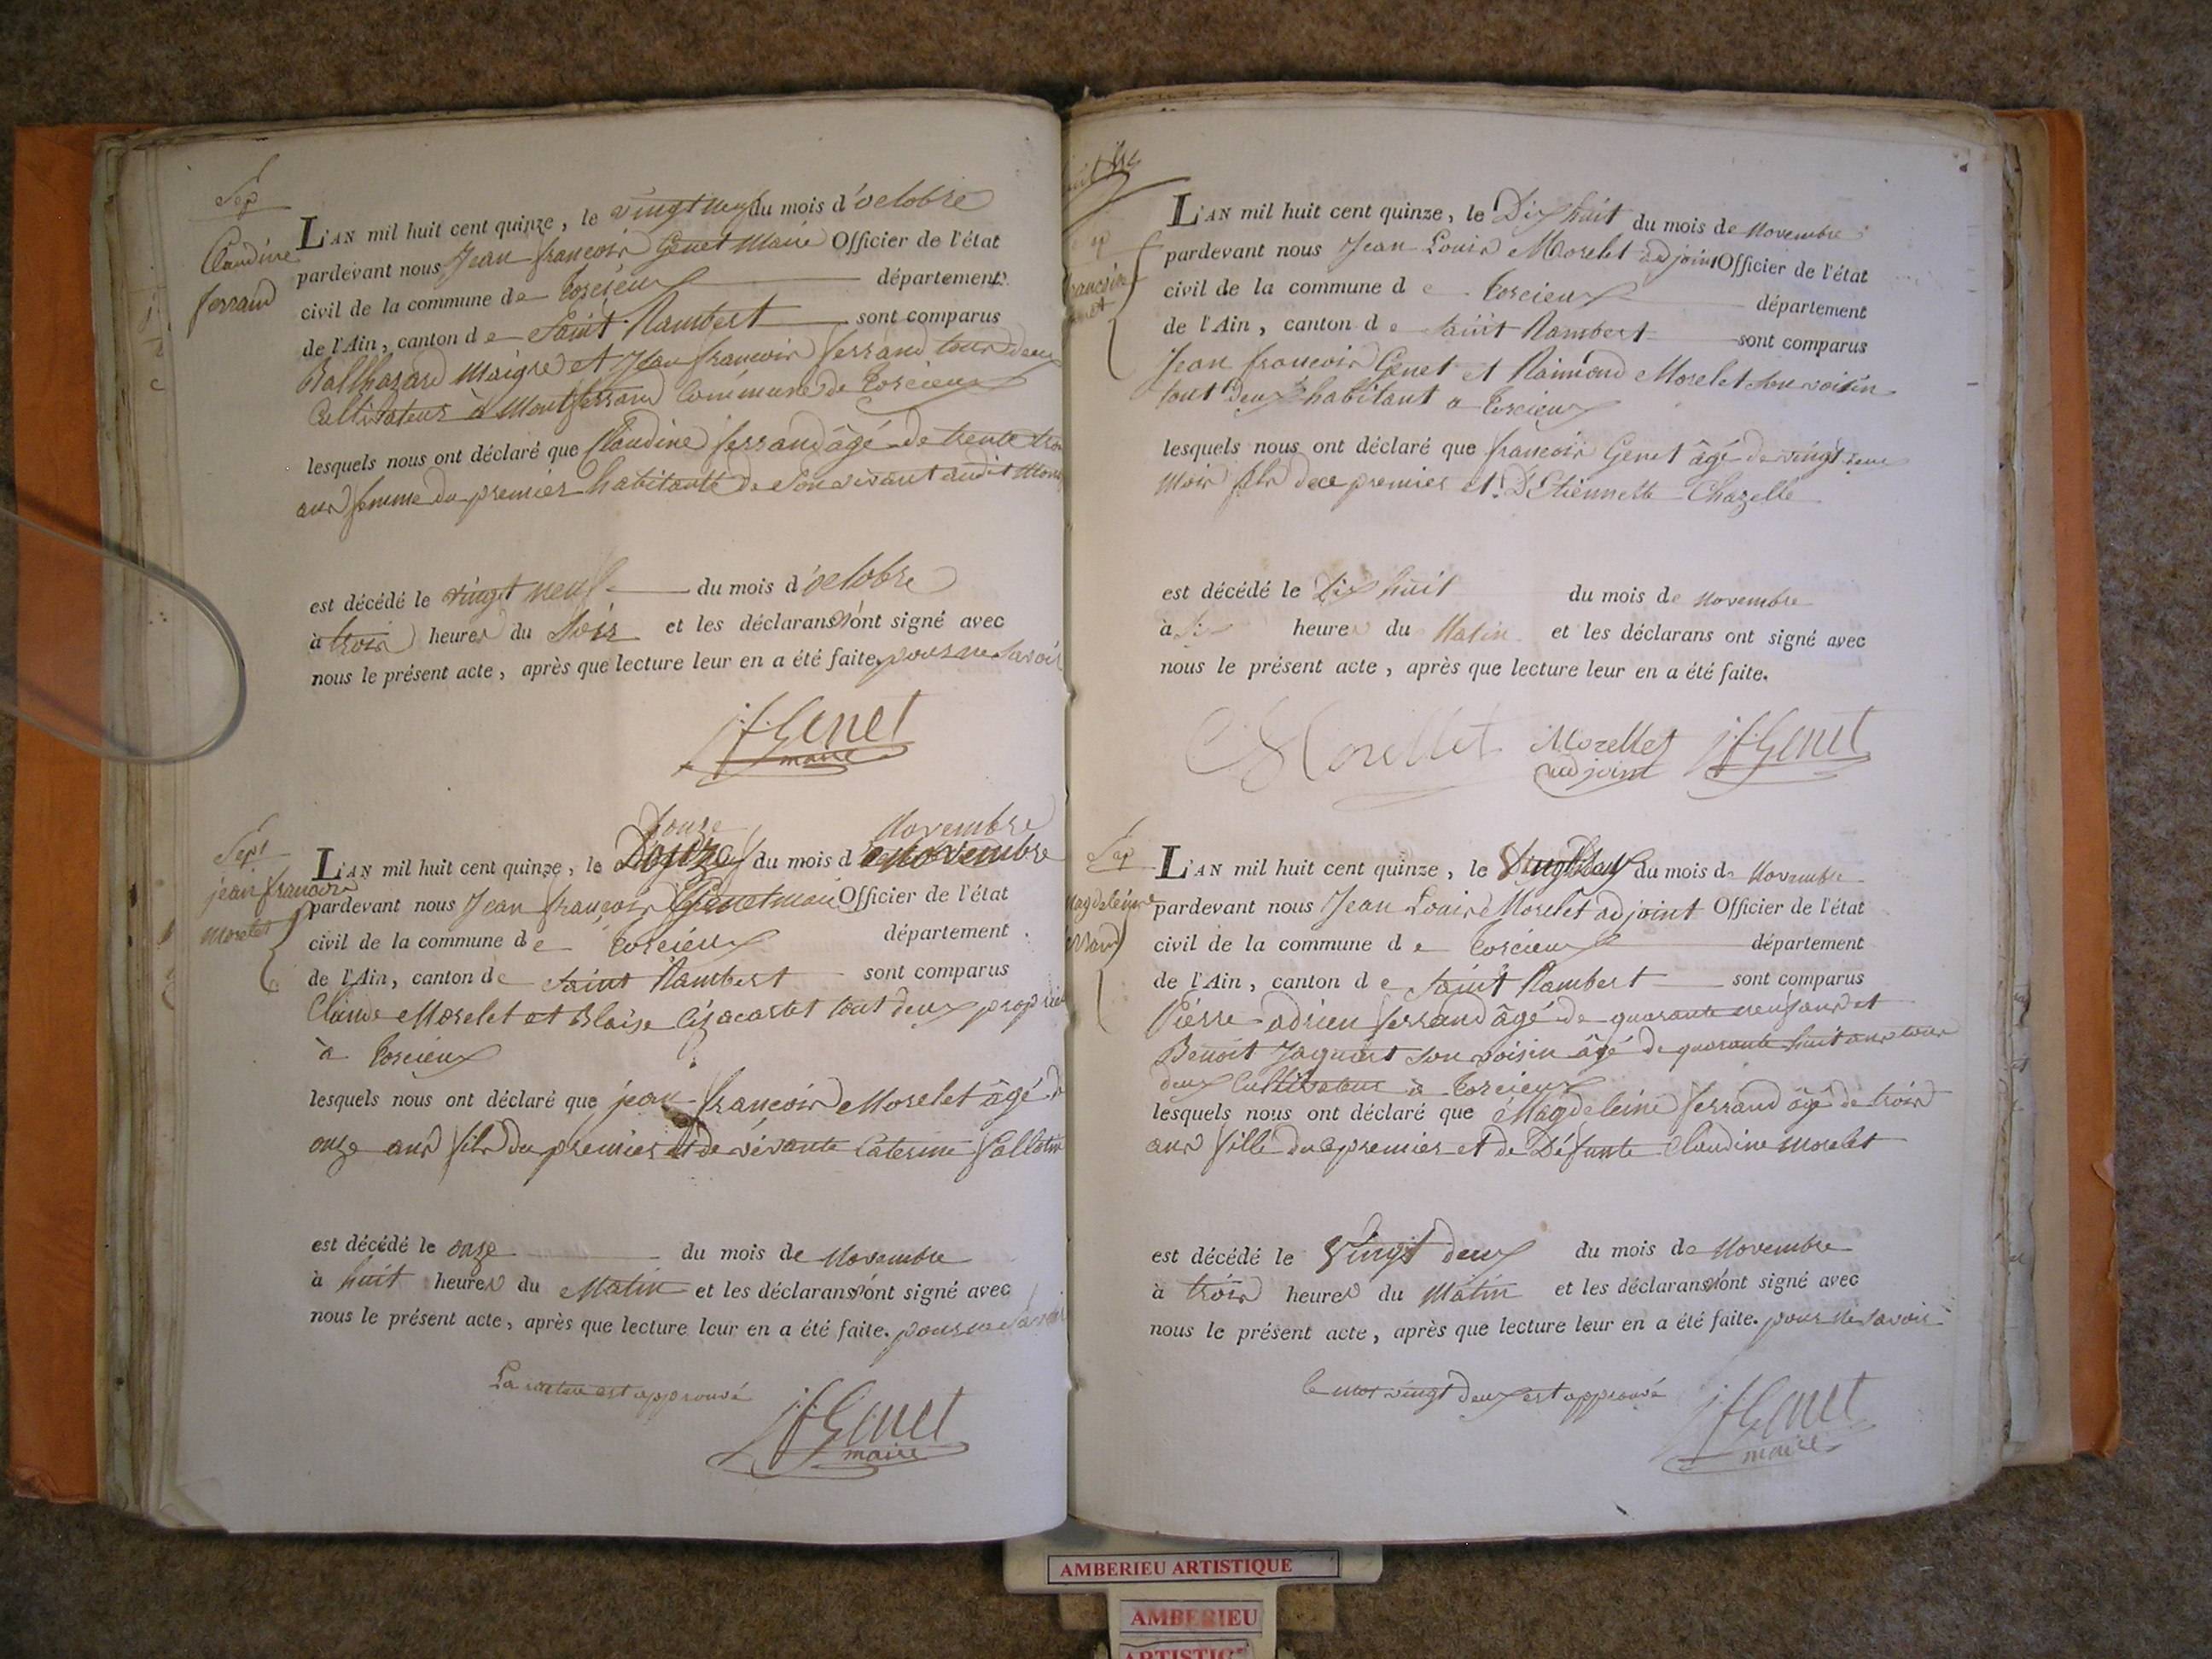 Sep
Claudine
ferrand
L'AN mil huit cent quinze, le vingt neuf du mois d'octobre
pardevant nous Jean françois Genet Maire Officier de l'état
civil de la commune de Torcieux département
de l'Ain, canton de Saint Rambert sont comparus
Balthazard Maigre et Jean françois ferrand tous deux
Cultivateur à Montferrand Commune de Torcieux
lesquels nous ont déclaré que Claudine ferrand âgé de trente trois
ans femme du premier habitante de son vivant audit
est décédé le vingt neuf du mois d'octobre
à trois heures du Soir et les déclarans n'ont signé avec
nous le présent acte, après que lecture leur en a été faite. pour ne Savoir
jfGenet
maire
Sep
jean françois
morelet
Douze Novembre
L'AN mil huit cent quinze, le du mois d
pardevant nous Jean françois Genet maire Officier de l'état
civil de la commune de Torcieux département
de l'Ain, canton de Saint Rambert sont comparus
Claude Morelet et Blaise tout deux
à Torcieux
lesquels nous ont déclaré que jean françois Morelet âgé de
onze ans fils du premier et de vivante Caterine
est décédé le onze du mois de Novembre
à huit heures du Matin et les déclarans n'ont signé avec
nous le présent acte, après que lecture leur en a été faite. pour ne Savoir
La rature est approuvé
jfGenet
maire
L'AN mil huit cent quinze, le Dix huit du mois de Novembre
pardevant nous Jean Louis Morelet adjoint Officier de l'état
civil de la commune de Torcieux département
de l'Ain, canton de Saint Rambert sont comparus
Jean françois Genet et Raimond Morelet son voisin
tout deux habitant a Torcieux
lesquels nous ont déclaré que françois Genet âgé de vingt deux
Mois fils de ce premier et D'Etiennette Chazelle
est décédé le Dix huit du mois de Novembre
à heures du Matin et les déclarans ont signé avec
nous le présent acte, après que lecture leur en a été faite.
Morellet Morellet jfGenet
adjoint
Sep
Magdeleine
L'AN mil huit cent quinze, le vingt deux du mois de Novembre
pardevant nous Jean Louis Morelet adjoint Officier de l'état
civil de la commune de Torcieux département
de l'Ain, canton de Saint Rambert sont comparus
Pierre adrien ferrand âgé de quarante neuf ans et
Benoit Jaquet son voisin âgé de quarante huit ans tous
deux Cultivateur à Torcieux
lesquels nous ont déclaré que Magdeleine ferrand âgé de trois
ans fille du premier et de Défunte Claudine Morelet
est décédé le Vingt deux du mois de Novembre
à trois heures du Matin et les déclarans n'ont signé avec
nous le présent acte, après que lecture leur en a été faite. pour ne Savoir
le mot vingt deux est approuvé
jfGenet
maire
AMBERIEU ARTISTIQUE
AMBERIEU